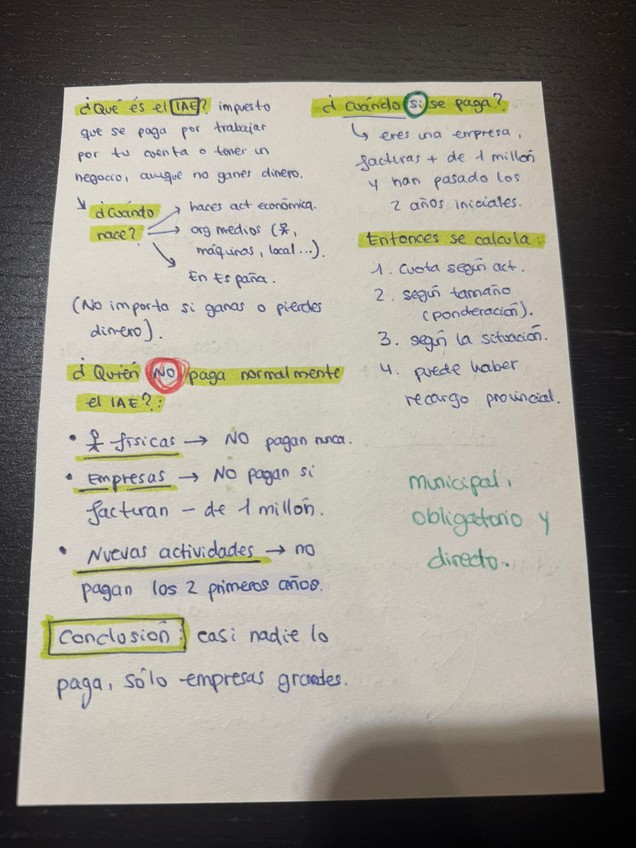 ¿Qué és el IAE? impuesto
que se paga por trabajar
por tu cuenta o tener un
negocio, aunque no ganes dinero.
¿Cuándo
nace?
haces act económica.
org medios (
máquinas, local...).
En España.
(No importa si ganas o pierdes
dinero).
¿Quién NO paga normalmente
el IAE?:
• físicas → NO pagan nunca.
• Empresas → NO pagan si
facturan - de 1 millón.
• Nuevas actividades → no
pagan los 2 primeros años.
Conclusión: casi nadie lo
paga, sólo empresas grandes.
¿Cuándo si se paga?
↳ eres una empresa,
facturas + de 1 millón
y han pasado los
2 años iniciales.
Entonces se calcula:
1. Cuota según act.
2. según tamaño
(ponderación).
3. según la situación.
4. puede haber
recargo provincial.
municipal,
obligatorio y
directo.